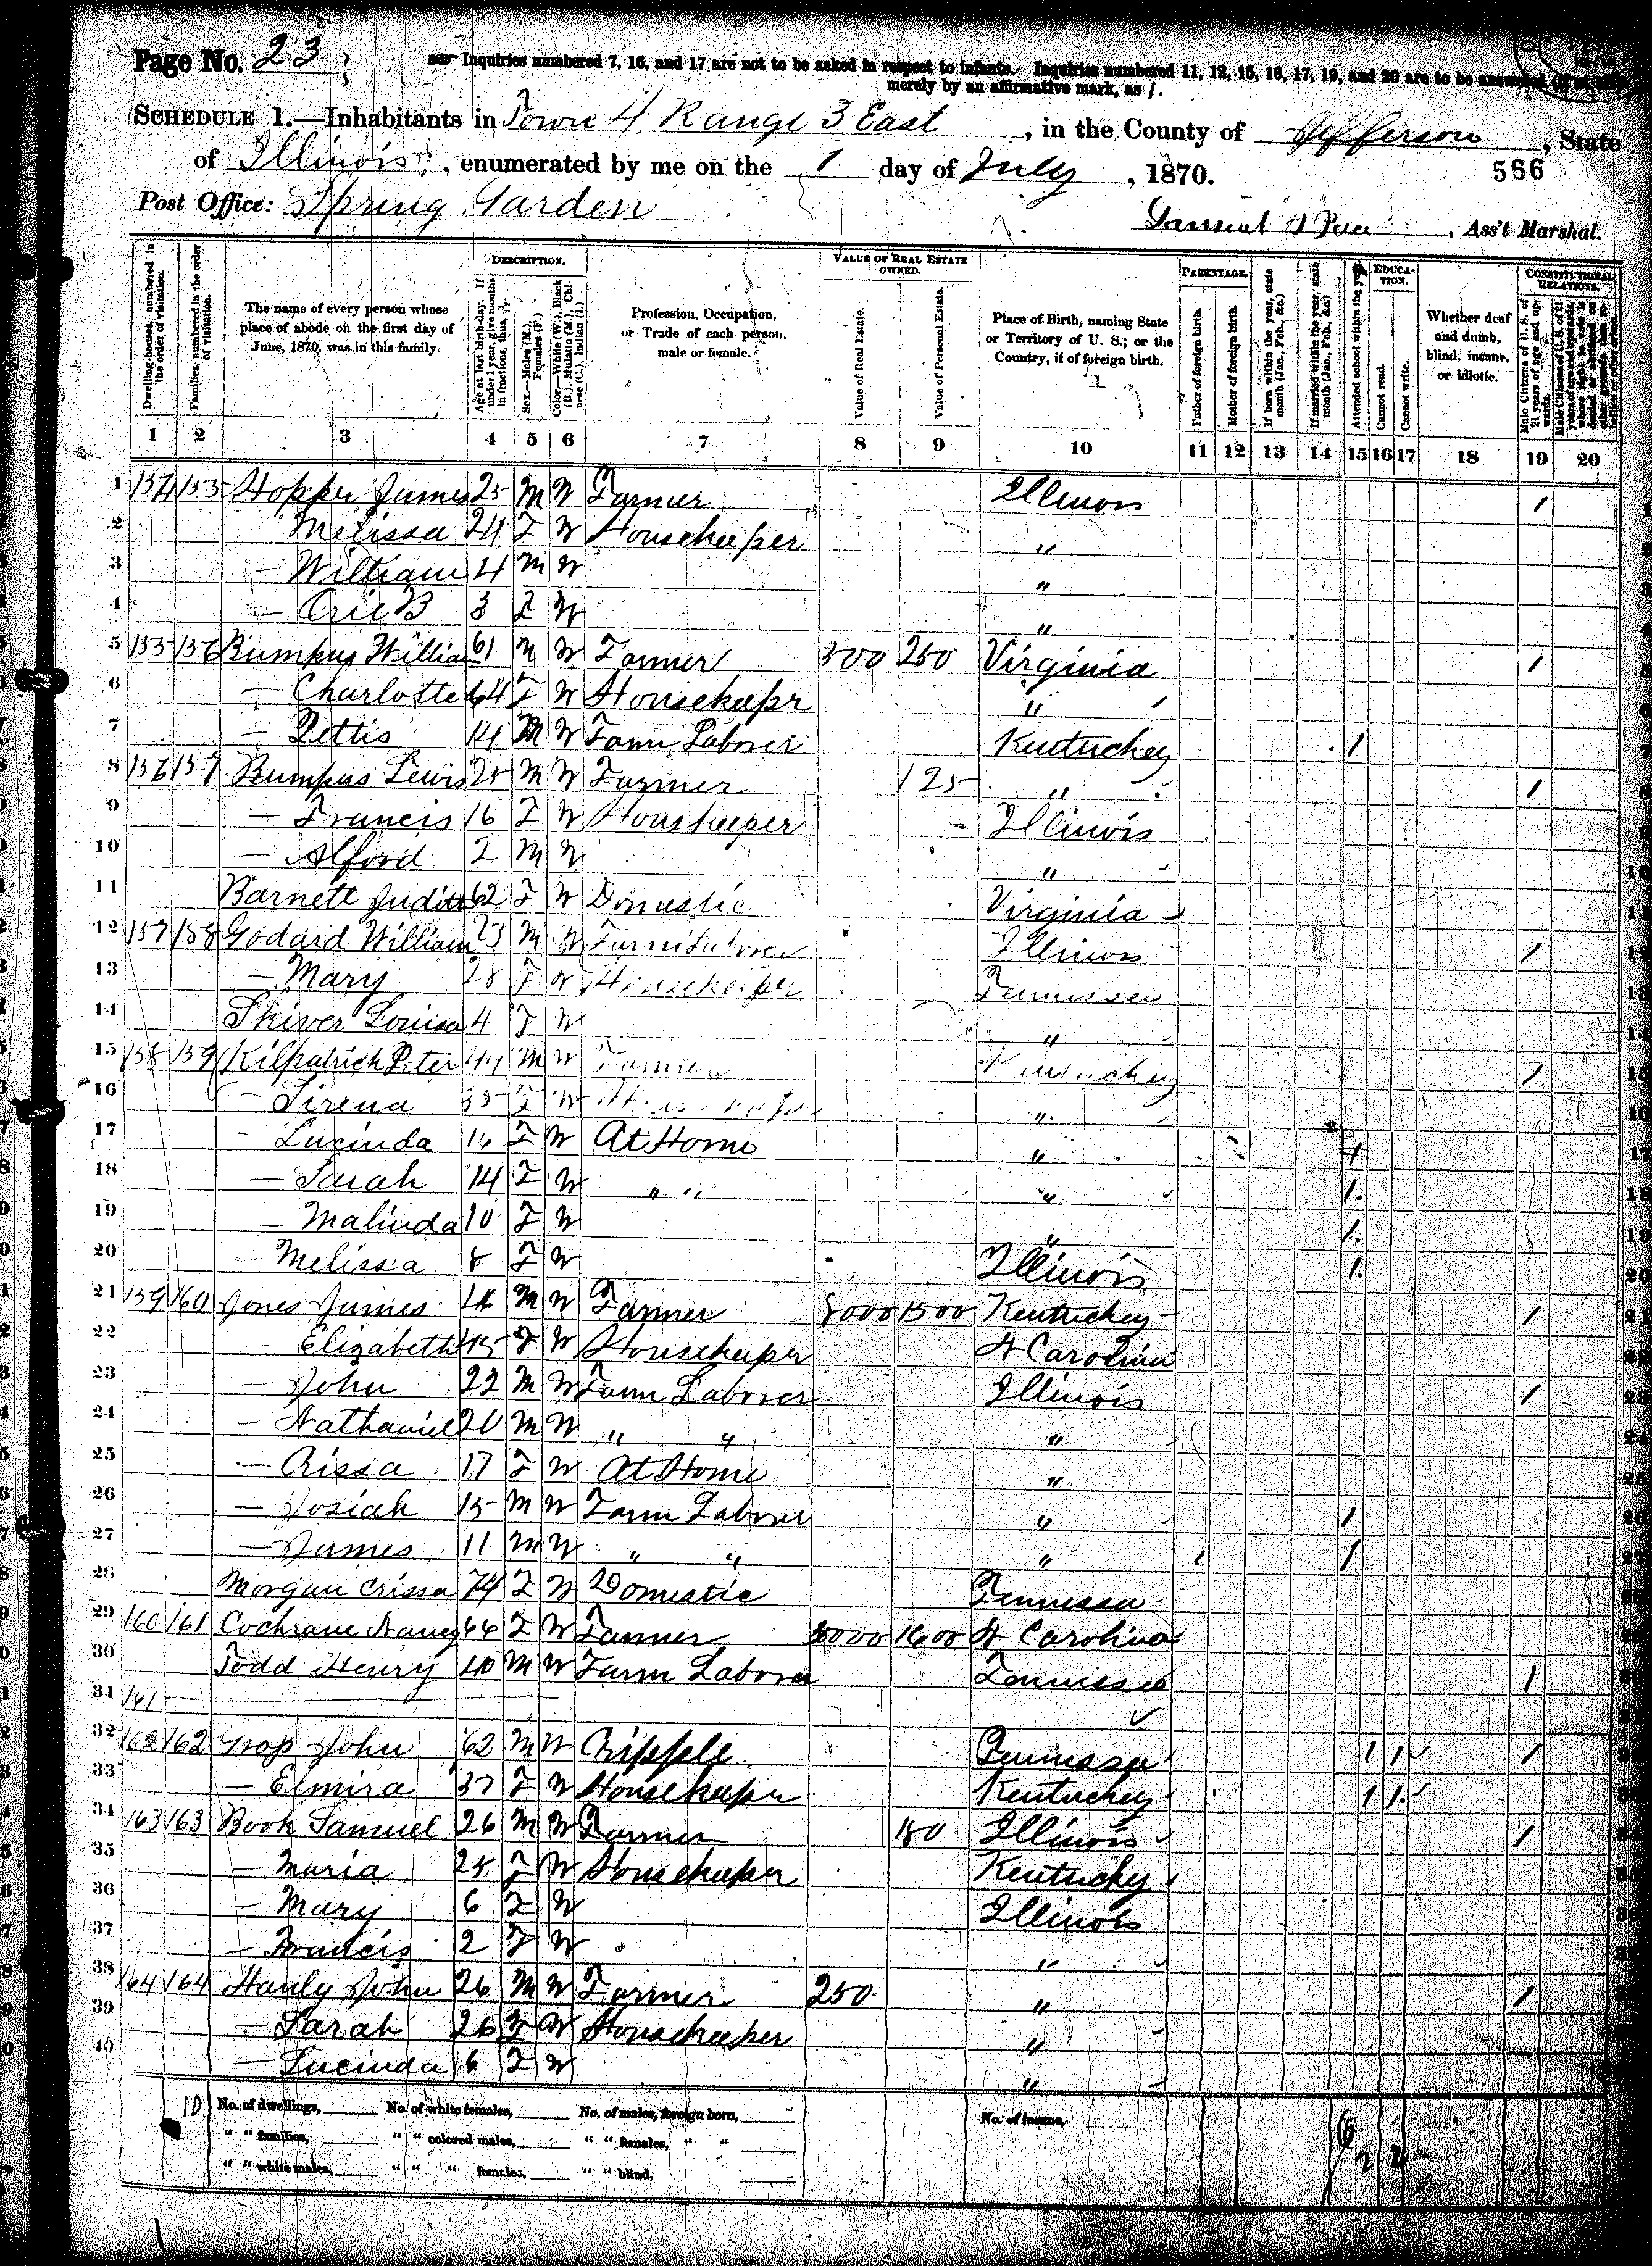 Page No. 23
Inquiries numbered 7, 16, and 17 are not to be asked in respect to infants. Inquiries numbered 11, 12, 15, 16, 17, 19, and 20 are to be answered
merely by an affirmative mark, as /.
SCHEDULE 1.—Inhabitants in Town 4 Range 3 East, in the County of Jefferson, State
of Illinois, enumerated by me on the 1 day of July, 1870.
566
Post Office: Spring Garden
Ass't Marshal.
DESCRIPTION. VALUE OF REAL ESTATE OWNED. PARENTAGE. EDUCATION. CONSTITUTIONAL RELATIONS.
Dwelling-houses, numbered in the order of visitation. Families, numbered in the order of visitation. The name of every person whose place of abode on the first day of June, 1870, was in this family. Age at last birth-day. If under 1 year, give months in fractions, thus, Sex.—Males (M.), Females (F.) Color.—White (W.), Black (B.), Mulatto (M.), Chinese (C.), Indian (I.) Profession, Occupation, or Trade of each person, male or female. Value of Real Estate. Value of Personal Estate. Place of Birth, naming State or Territory of U. S.; or the Country, if of foreign birth. Father of foreign birth. Mother of foreign birth. If born within the year, state month (Jan., Feb., &c.) If married within the year, state month (Jan., Feb., &c.) Attended school within the year. Cannot read. Cannot write. Whether deaf and dumb, blind, insane, or idiotic. Male Citizens of U. S. of 21 years of age and upwards.
1 2 3 4 5 6 7 8 9 10 11 12 13 14 15 16 17 18 19 20
1 154 155 Hopper James 25 M W Farmer Illinois 1
2 Melissa 24 F W Housekeeper "
3 — William 4 M W "
4 — Orie B 3 F W "
5 155 156 Bumpus William 61 M W Farmer 300 250 Virginia 1
6 — Charlotte 64 F W Housekeepr "
7 — Pettis 14 M W Farm Laborer Kentuckey 1
8 156 157 Bumpus Lewis 25 M W Farmer 125 " 1
9 — Francis 16 F W Houskeeper Illinois
10 — Alford 2 M W "
11 Barnett Judith 62 F W Domestic Virginia
12 157 158 Godard William 23 M W Farm Laborer Illinois 1
13 — Mary 28 F W Housekeeper Tennissee
14 Skiver Louisa 4 F W "
15 158 159 Kilpatrick Peter 44 M W Farmer Kentuckey 1
16 — Sirena 35 F W "
17 — Lucinda 16 F W At Home " 1
18 — Sarah 14 F W " " " 1
19 — Malinda 10 F W " 1
20 — Melissa 8 F W Illinois 1
21 159 160 Jones James M W Farmer 8000 1500 Kentuckey 1
22 Elizabeth 45 F W Housekeeper N Carolina
23 — John 22 M W Farm Laborer Illinois 1
24 — Nathaniel 20 M W " " "
25 — Crissa 17 F W At Home "
26 — Josiah 15 M W Farm Laborer " 1
27 — James 11 M W " " " 1
28 Morgan Crissa 74 F W Domestic Tennessee
29 160 161 Cochrane Nancy 44 F W Farmer 1600 N Carolina
30 Todd Henry 40 M W Farm Laborer Tennissee 1
31 161
32 162 162 John 62 M W Cripple Tennessee 1 1 1
33 — Elmira 37 F W Housekeeper Kentuckey 1 1
34 163 163 Book Samuel 26 M W Farmer 180 Illinois 1
35 — Maria 25 F W Housekeeper Kentucky
36 — Mary 6 F W Illinois
37 — Francis 2 F W "
38 164 164 Hanly John 26 M W Farmer 250 " 1
39 — Sarah 26 F W Housekeeper "
40 — Lucinda 6 F W "
10 No. of dwellings, No. of white females, No. of males, foreign born, No. of insane,
" " families, " " colored males, " " females, " "
" " white males, " " " females, " " blind,
6
2 2